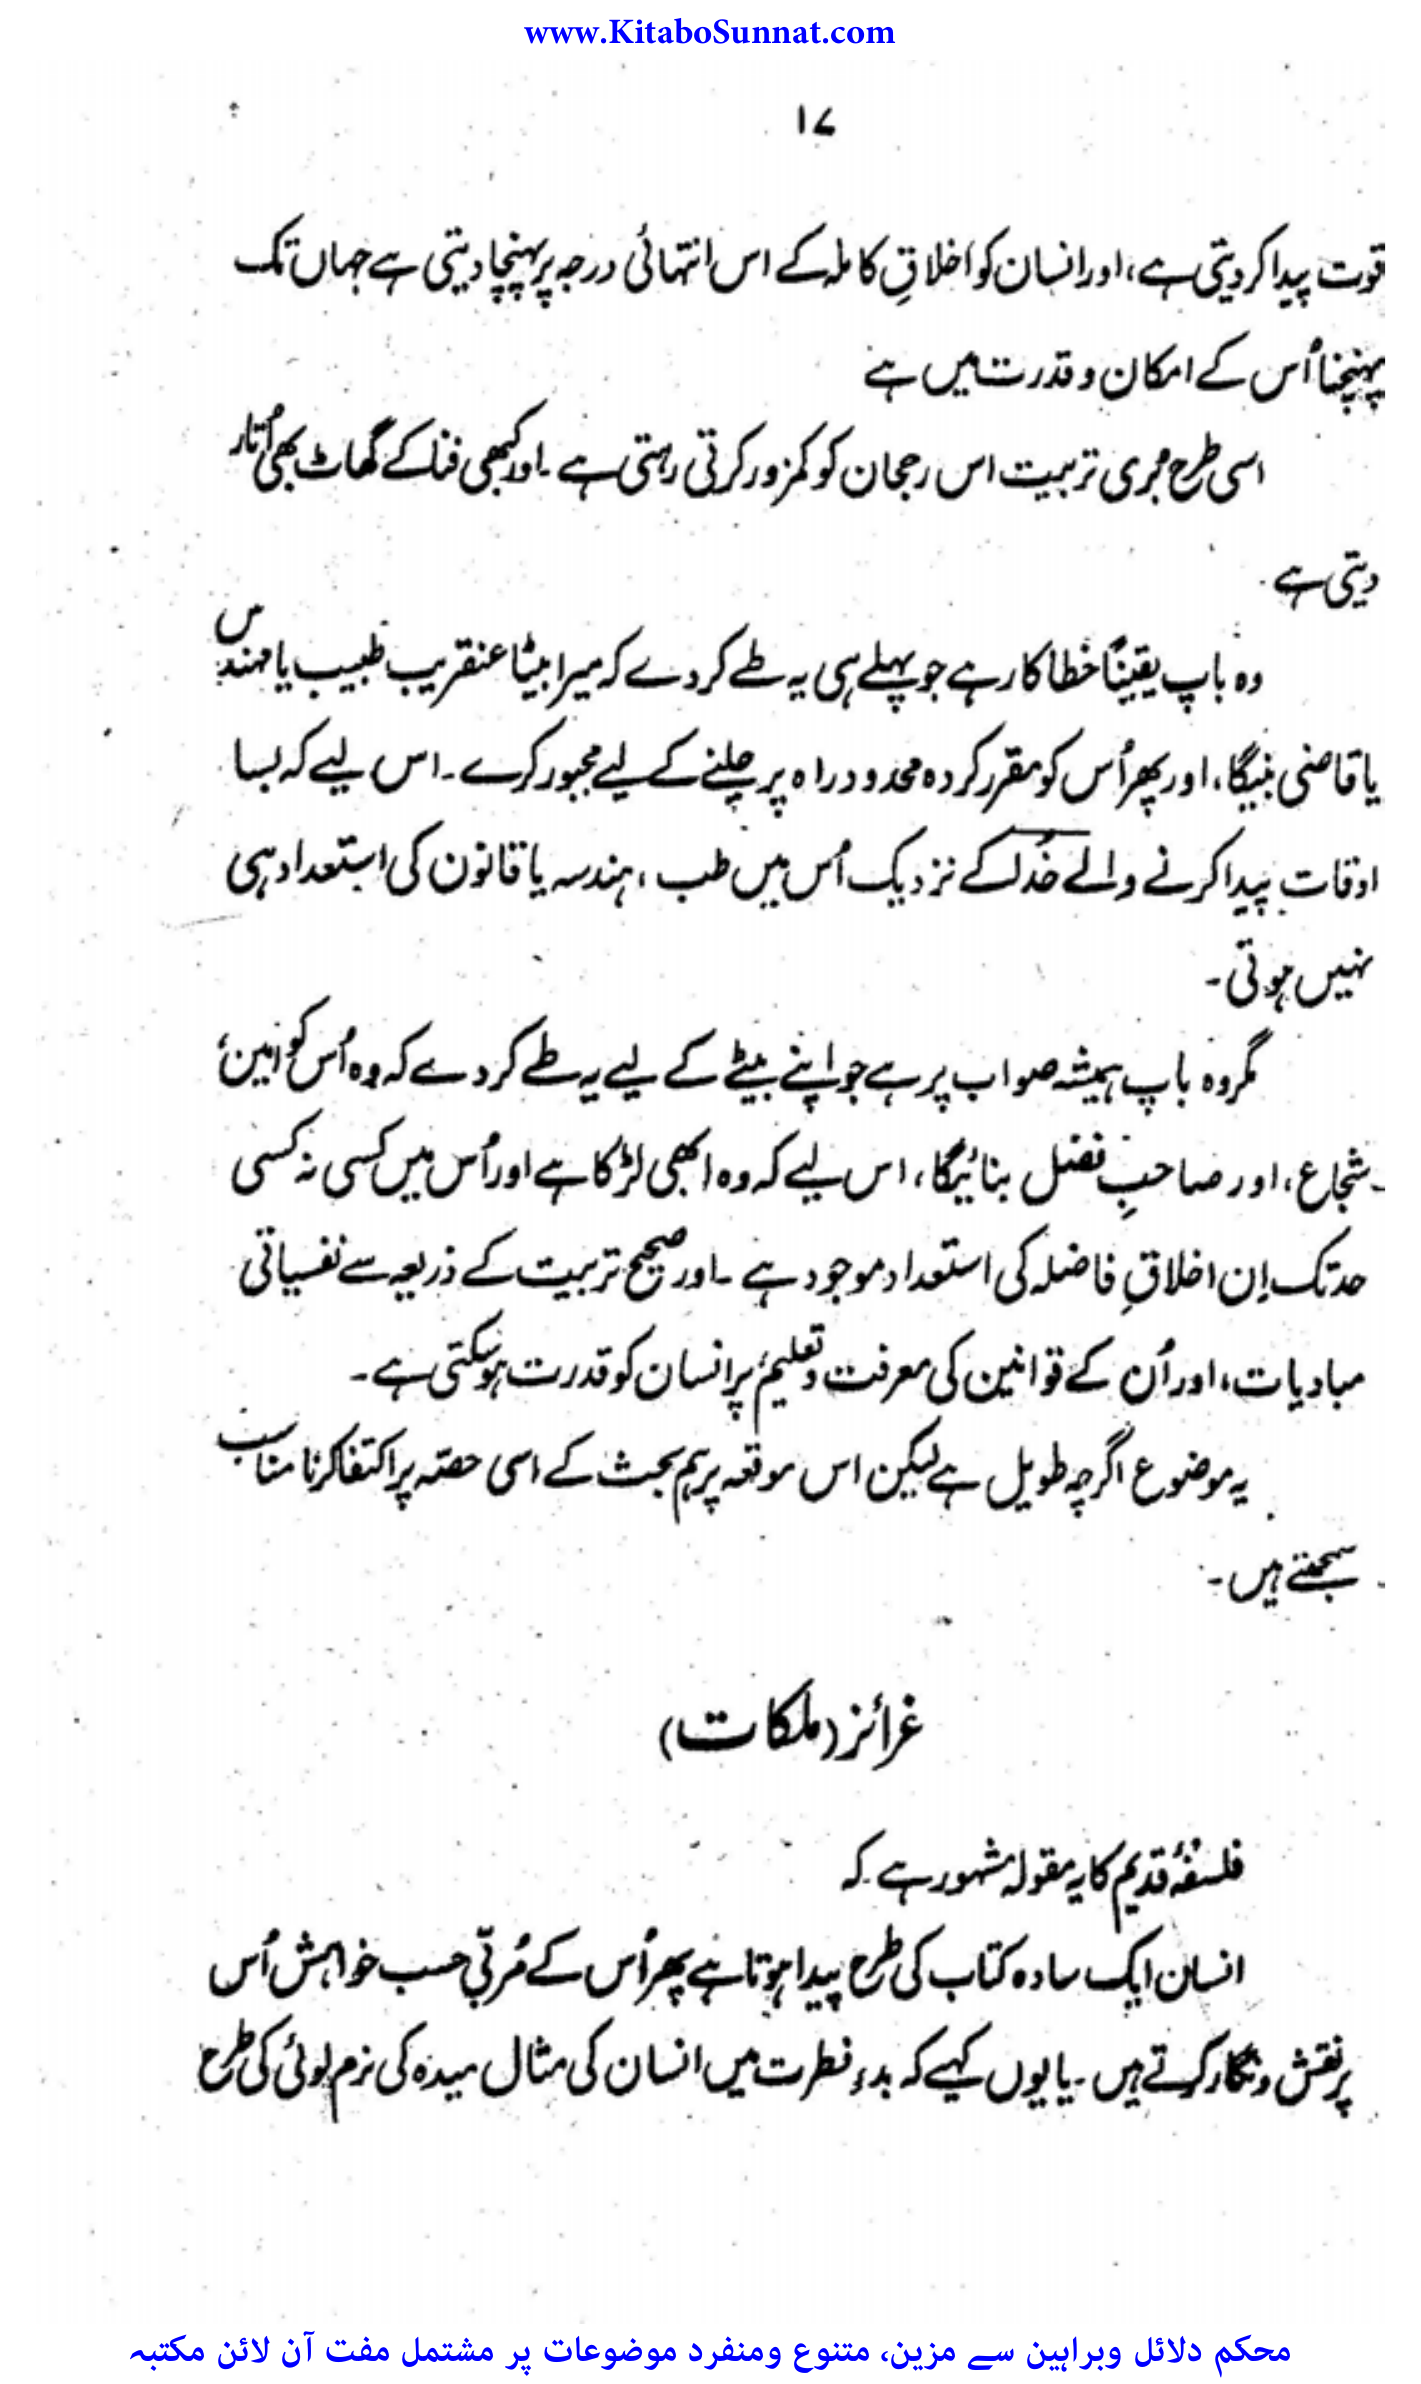 www.KitaboSunnat.com
۱۷
قوت پیدا کر دیتی ہے، اور انسان کو اخلاقِ کاملہ کے اس انتہائی درجہ پر پہنچا دیتی ہے جہاں تک
پہنچنا اُس کے امکان و قدرت میں ہے
اسی طرح بری تربیت اس رجحان کو کمزور کرتی رہتی ہے ۔ اور کبھی فنا کے گھاٹ بھی اُتار
دیتی ہے۔
وہ باپ یقیناً خطا کار ہے جو پہلے ہی یہ طے کر دے کہ میرا بیٹا عنقریب طبیب یا مہندس
یا قاضی بنیگا، اور پھر اُس کو مقرر کردہ محدود راہ پر چلنے کے لیے مجبور کرے ۔ اس لیے کہ بسا
اوقات پیدا کرنے والے خدا کے نزدیک اُس میں طب، ہندسہ یا قانون کی استعداد ہی
نہیں ہوتی ۔
مگر وہ باپ ہمیشہ صواب پر ہے جو اپنے بیٹے کے لیے یہ طے کر دے کہ وہ اُس کو امین،
شجاع، اور صاحبِ فضل بنائیگا، اس لیے کہ وہ ابھی لڑکا ہے اور اُس میں کسی نہ کسی
حد تک اِن اخلاقِ فاضلہ کی استعداد موجود ہے ۔ اور صحیح تربیت کے ذریعہ سے نفسیاتی
مبادیات، اور اُن کے قوانین کی معرفت و تعلیم پر انسان کو قدرت ہو سکتی ہے ۔
یہ موضوع اگرچہ طویل ہے لیکن اس موقعہ پر ہم بحث کے اسی حصّہ پر اکتفا کرنا مناسب
سمجھتے ہیں ۔
غرائز (ملکات)
فلسفۂ قدیم کا یہ مقولہ مشہور ہے کہ
انسان ایک سادہ کتاب کی طرح پیدا ہوتا ہے پھر اُس کے مُربّی حسب خواہش اُس
پر نقش و نگار کرتے ہیں ۔ یا یوں کہیے کہ بدءِ فطرت میں انسان کی مثال میدہ کی نرم لوئی کی طرح
محکم دلائل وبراہین سے مزین، متنوع ومنفرد موضوعات پر مشتمل مفت آن لائن مکتبہ